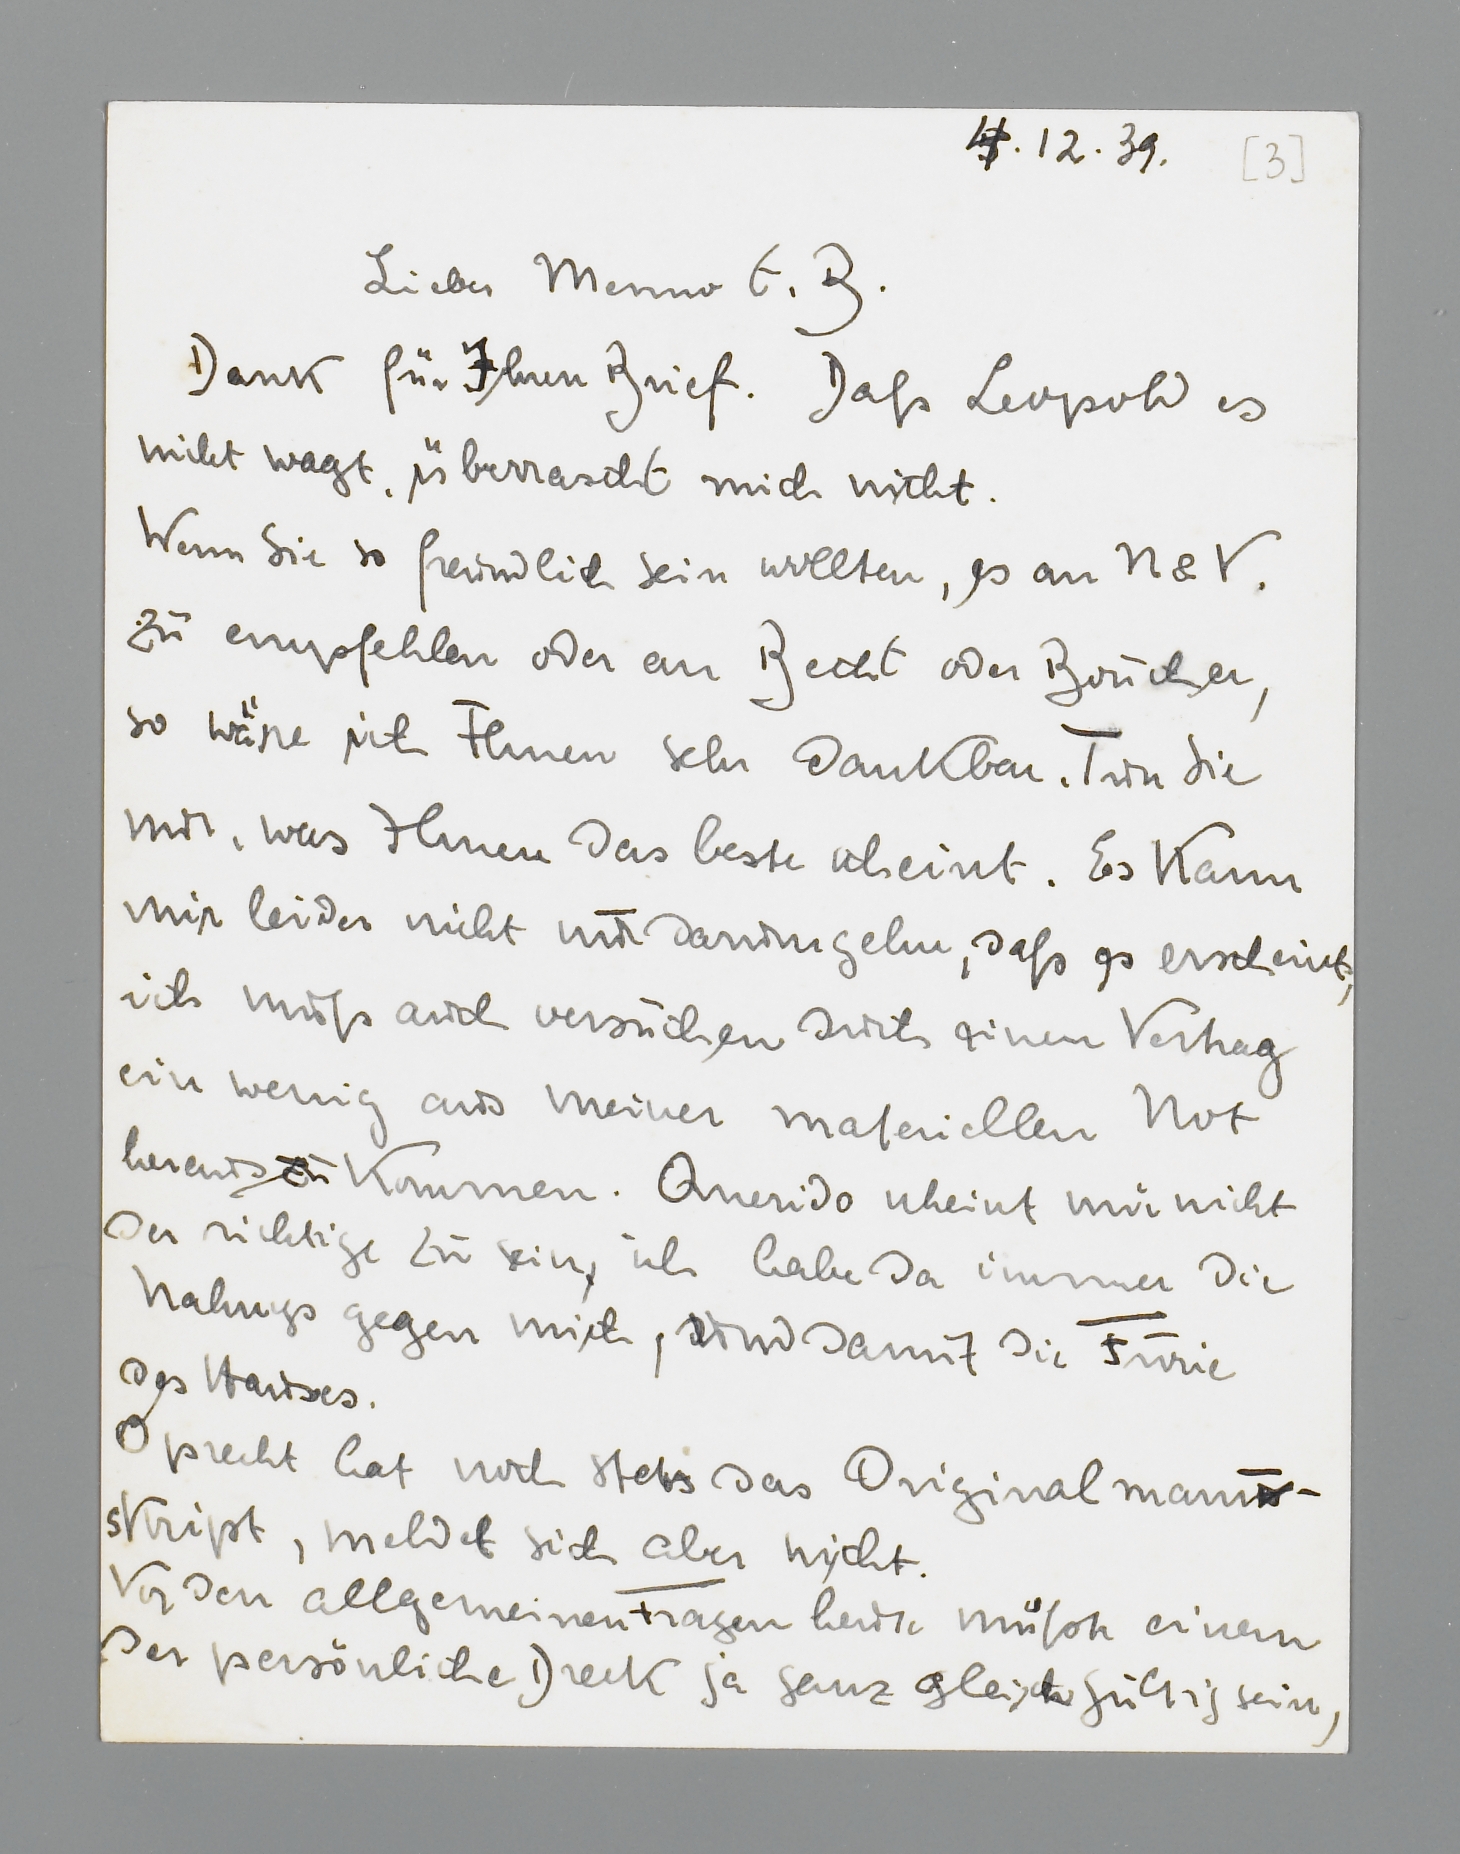 4. 12. 39. [3]
Lieber Menno t. B.
Dank für Ihren Brief. Daß Leopold es
nicht wagt, überrascht mich nicht.
Wenn Sie so freundlich sein wollten, es an N & V.
zu empfehlen oder an Becht oder Boucher,
so wäre ich Ihnen sehr dankbar. Tun Sie
nur, was Ihnen das beste scheint. Es kann
mir leider nicht nur darum gehn, daß es erscheint,
ich muß auch versuchen durch einen Vertrag
ein wenig aus meiner materiellen Not
heraus zu kommen. Querido scheint mir nicht
der richtige zu sein, ich habe da immer die
gegen mich, und damit die Furie
des Hauses.
Oprecht hat noch stets das Originalmanu-
skript, meldet sich aber nicht.
Vor den allgemeinen Fragen heute müßte einem
der persönliche Dreck ja ganz gleichgültig sein,